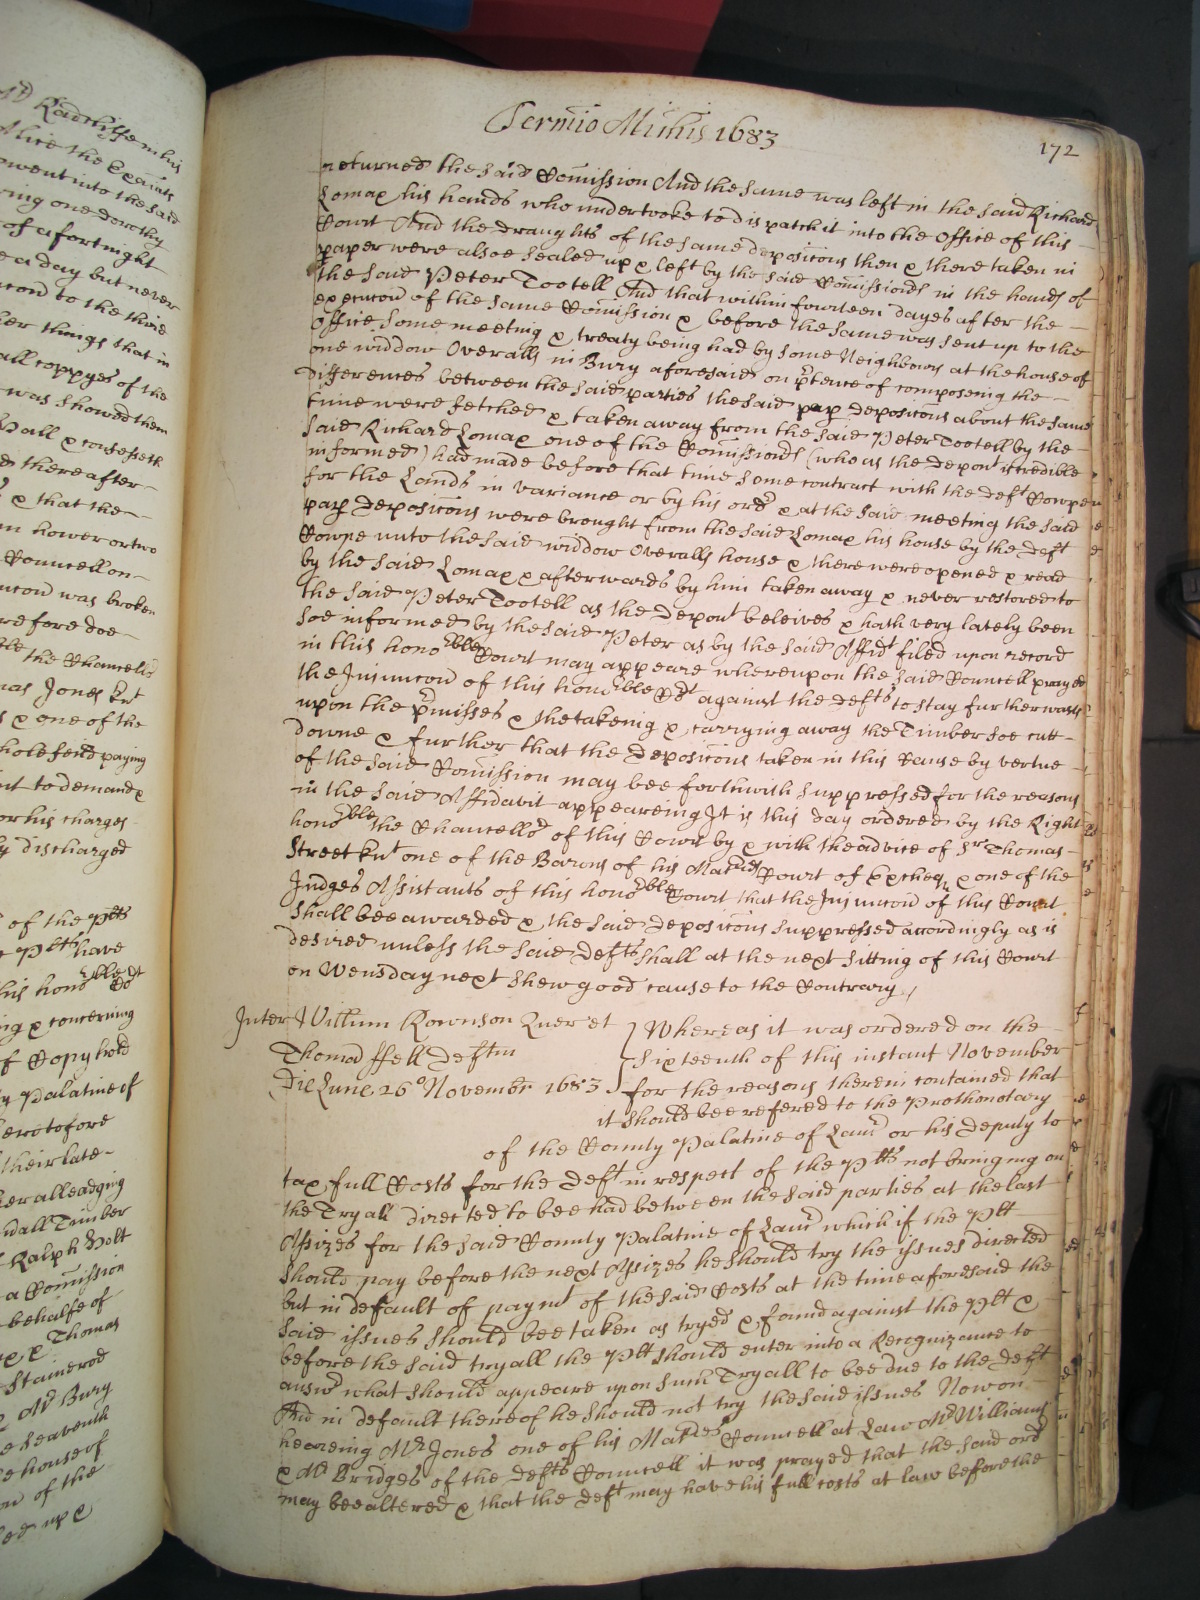 Termio Michis 1683
172
returned the said Comission And the same was left in the said Richard
Lomax his hands who undertooke to dispatch it into the Office of this
Court And the draughts of the same deposicons then & there taken in
paper were alsoe sealed up & left by the said Comissionrs in the hands of
the said Peter Tootell And that within fowrteen dayes after the
execucon of the same Comission & before the same was sent up to the
Office some meeting & treaty being had by some Neighbours at the house of
one widdow Overalls in Bury aforesaid on ptence of composeing the
differences between the said parties the said pap deposicons about the same
time were fetched & taken away from the said Peter Tootell by the
said Richard Lomax one of the Comissionrs (who as the depont is credible
informed) had made before that time some contract with the deft Cowpe
for the Lands in variance or by his ordr & at the said meeting the said
pap deposicons were brought from the said Lomax his house by the deft
Cowpe unto the said widdow Overalls house & there were opened & read
by the said Lomax & afterwards by him taken away & never restored to
the said Peter Tootell as the depont beleives & hath very lately been
soe informed by the said Peter as by the said Affidt filed upon record
in this honoble Court may appeare whereupon the said Councell prayed
the Injuncon of this honoble Cort against the defts to stay further wast
upon the pmisses & the takeing & carrying away the Timber soe cutt
downe & further that the deposicons taken in this Cause by vertue
of the said Comission may bee forthwith suppressed for the reasons
in the said Affidavit appeareing It is this day ordered by the Right
honoble the Chancellor of this Court by & with the advice of Sr Thomas
Street knt one of the Barons of his Maties Court of Excheqr & one of the
Judges Assistants of this honoble Court that the Injuncon of this Court
shall bee awarded & the said deposicons suppressed accordingly as is
desired unless the said defts shall at the next sitting of this Court
on Wensday next shew good cause to the Contrary
Inter Willum Rownson Quer et
Thomas ffell Deftm
Die Lune 26o Novembr 1683
Whereas it was ordered on the
sixteenth of this instant November
for the reasons therein contained that
it should bee refered to the Prothonotary
of the County Palatine of Lancr or his deputy to
tax full Costs for the deft in respect of the Pltts not bringing on
the Tryall directed to bee had between the said parties at the last
Assizes for the said County Palatine of Lancr which if the Pltt
should pay before the next Assizes he should try the issues directed
but in default of paymt of the said Costs at the time aforesaid the
said issues should bee taken as tryed & found against the Pltt &
before the said tryall the Pltt should enter into a Recognizance to
answr what should appeare upon such Tryall to bee due to the deft
And in default thereof he should not try the said issues Now on
heareing Mr Jones one of his Maties Councell at Law Mr Williams
& Mr Bridges of the defts Councell it was prayed that the said ordr
may bee altered & that the deft may have his full costs at law before the